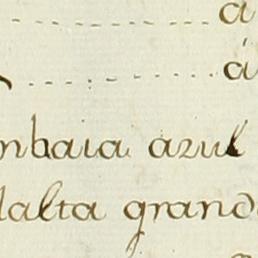 á
á
mbaia azul
lalta grand